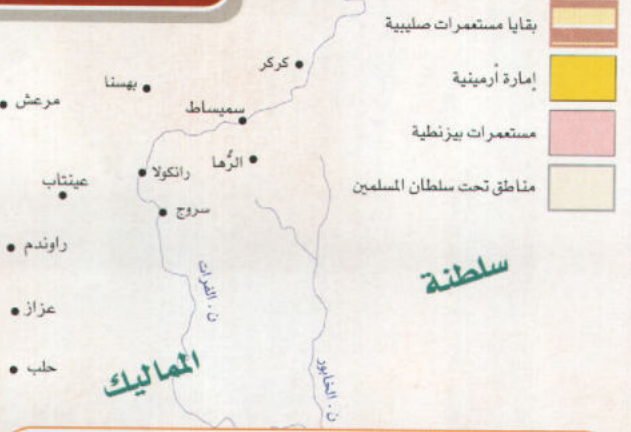 بقايا مستعمرات صليبية
إمارة أرمينية
مستعمرات بيزنطية
مناطق تحت سلطان المسلمين
كركر
بهسنا
مرعش
سميساط
الرُّها
رانكولا
عينتاب
سروج
راوندم
سلطنة
ن. الفرات
عزاز
المماليك
حلب
ن. الخابور